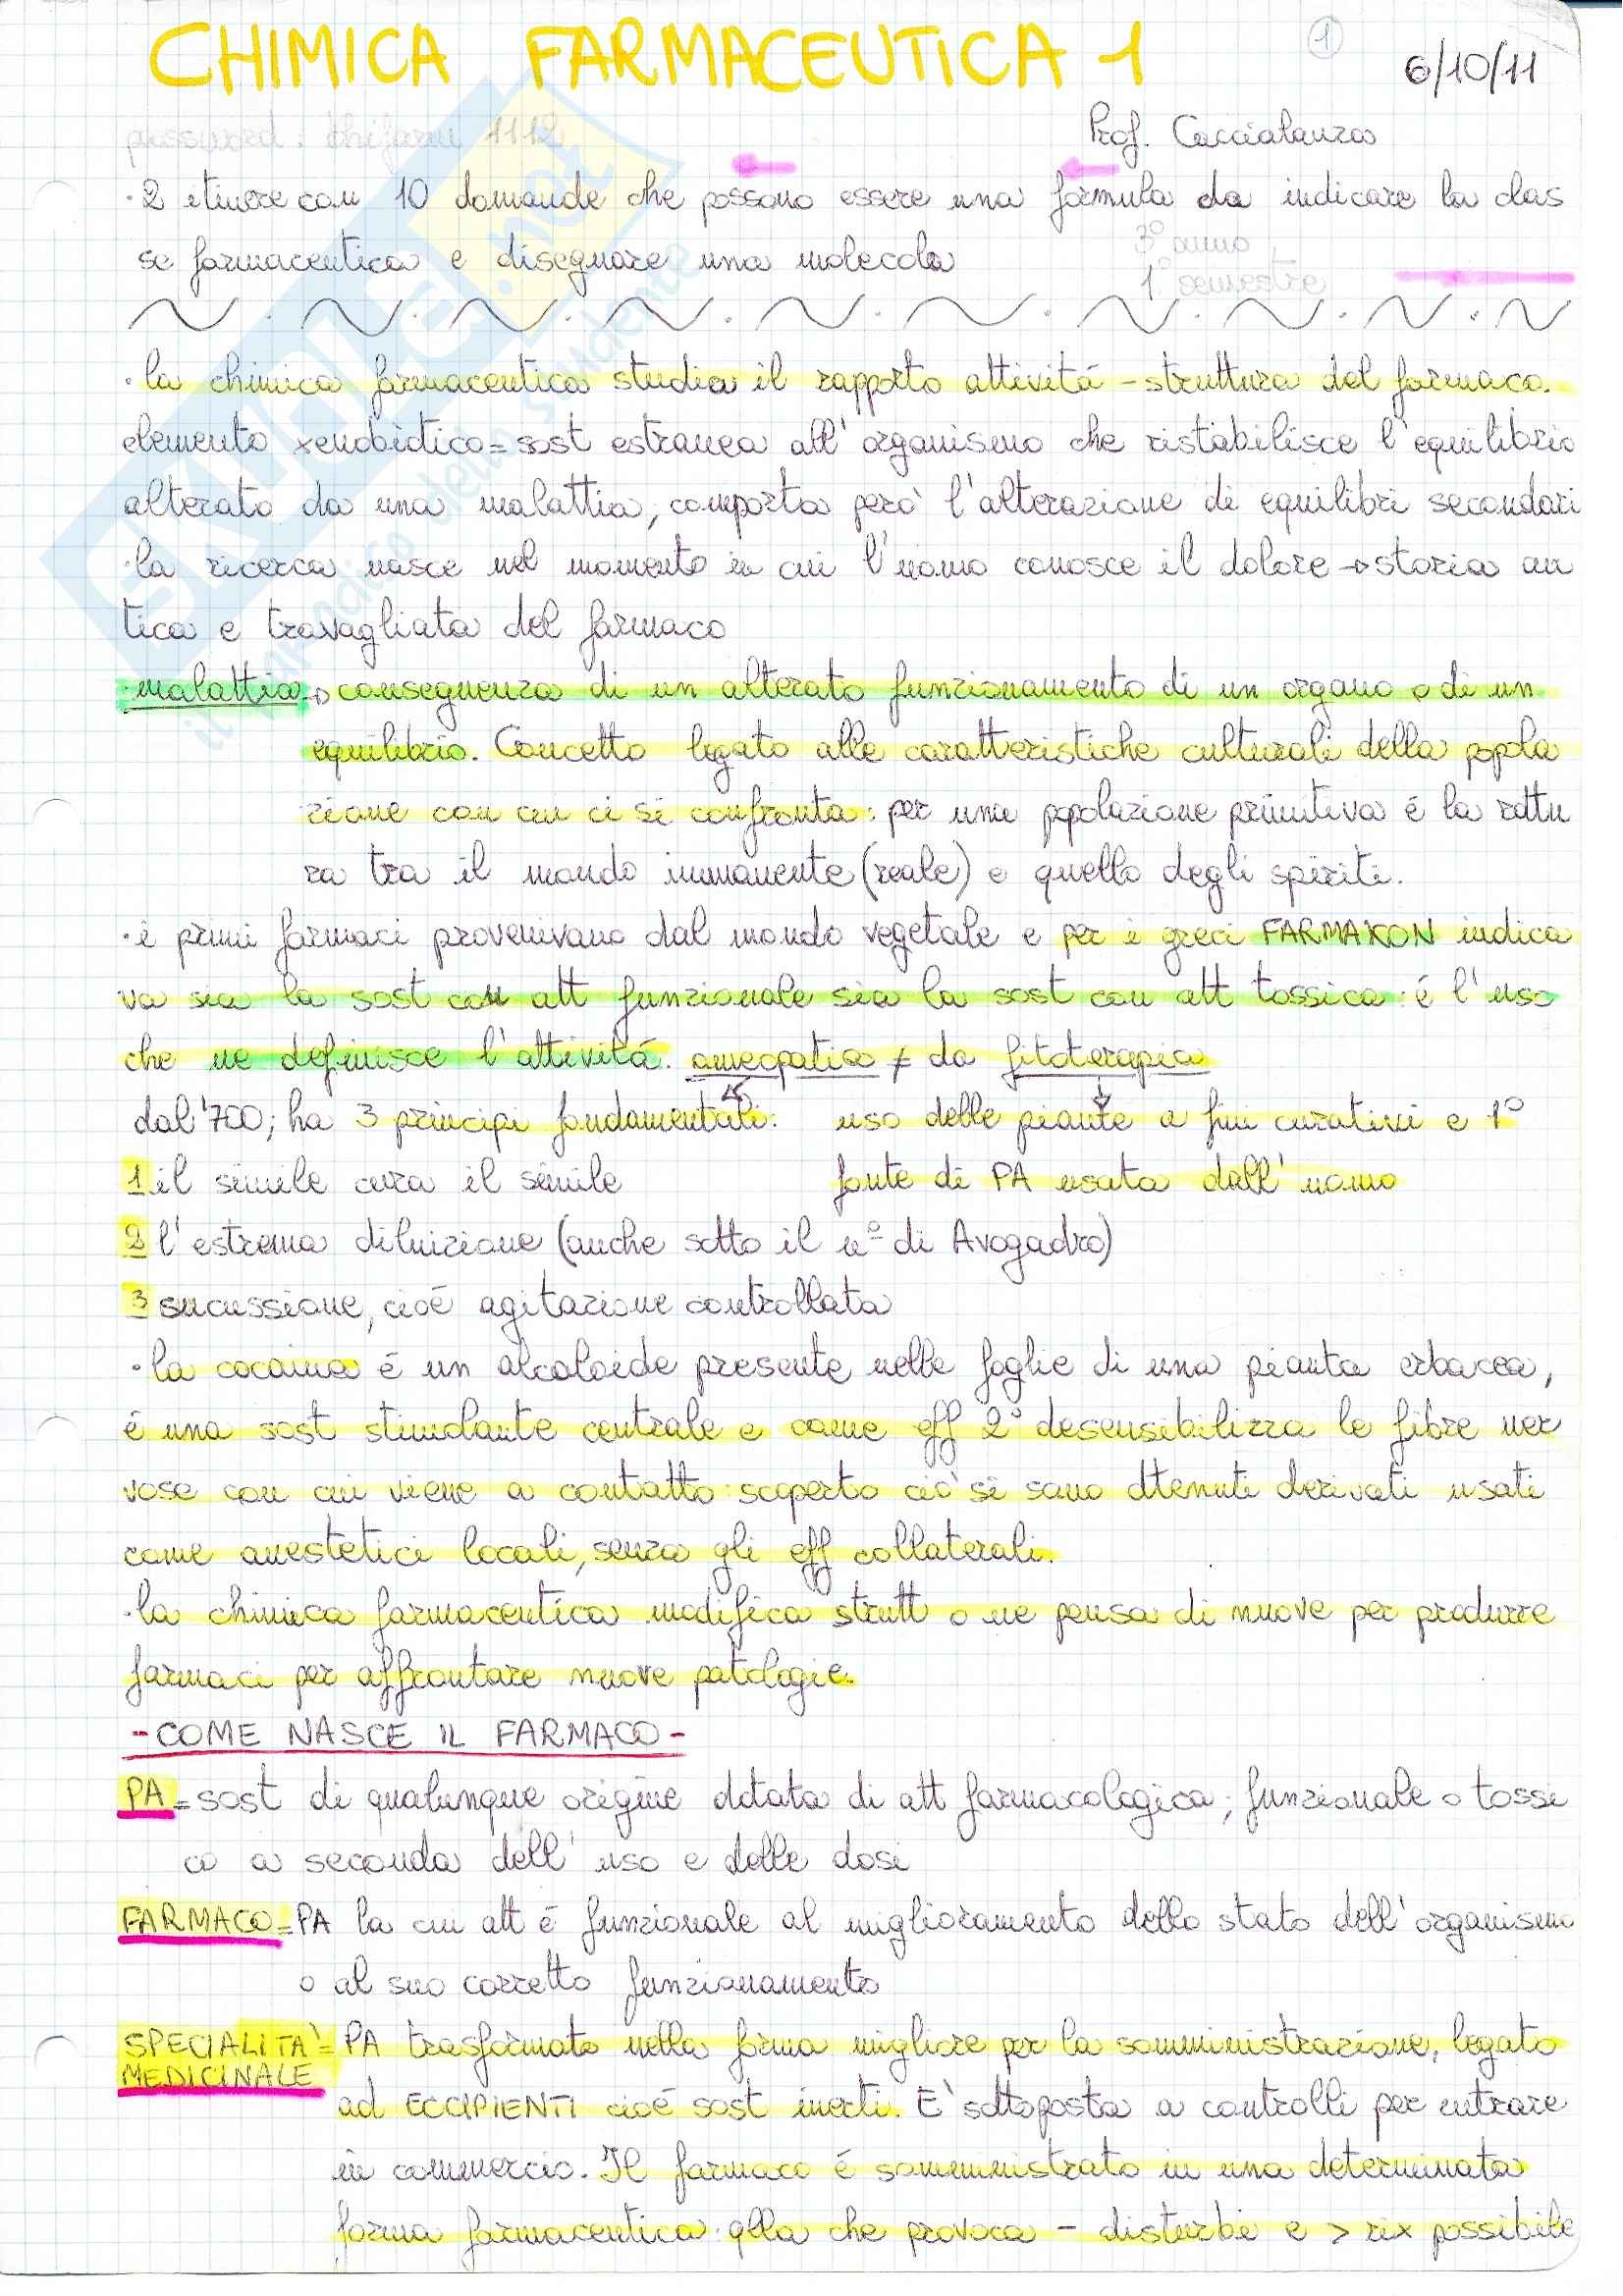 CHIMICA FARMACEUTICA 1
1
6/10/11
password: chifarm 1112
Prof. Caccialanza
·2 itinere con 10 domande che possono essere una formula da indicare la clas
se farmaceutica e disegnare una molecola
3° anno
1° semestre
·la chimica farmaceutica studia il rapporto attività-struttura del farmaco.
elemento xenobiotico=sost estranea all'organismo che ristabilisce l'equilibrio
alterato da una malattia, comporta però l'alterazione di equilibri secondari
·la ricerca nasce nel momento in cui l'uomo conosce il dolore→storia an
tica e travagliata del farmaco
·malattia→conseguenza di un alterato funzionamento di un organo o di un
equilibrio. Concetto legato alle caratteristiche culturali della popola
zione con cui ci si confronta: per una popolazione primitiva é la rottu
ra tra il mondo immanente (reale) e quello degli spiriti.
·i primi farmaci provenivano dal mondo vegetale e per i greci FARMAKON indica
va sia la sost con att funzionale sia la sost con att tossica: é l'uso
che ne definisce l'attività. omeopatia ≠ da fitoterapia
dal '700; ha 3 principi fondamentali: uso delle piante a fini curativi e 1°
1 il simile cura il simile fonte di PA usata dall'uomo
2 l'estrema diluizione (anche sotto il n° di Avogadro)
3 succussione, cioé agitazione controllata
·la cocaina é un alcaloide presente nelle foglie di una pianta erbacea,
é una sost stimolante centrale e come eff 2° desensibilizza le fibre ner
vose con cui viene a contatto: scoperto ciò si sono ottenuti derivati usati
come anestetici locali, senza gli eff collaterali.
·la chimica farmaceutica modifica strutt o ne pensa di nuove per produrre
farmaci per affrontare nuove patologie.
-COME NASCE IL FARMACO-
PA=sost di qualunque origine dotata di att farmacologica; funzionale o tossi
ca a seconda dell'uso e delle dosi
FARMACO=PA la cui att é funzionale al miglioramento dello stato dell'organismo
o al suo corretto funzionamento
SPECIALITA'=PA trasformato nella forma migliore per la somministrazione, legato
MEDICINALE ad ECCIPIENTI cioé sost inerti. E' sottoposta a controlli per entrare
in commercio. Il farmaco é somministrato in una determinata
forma farmaceutica: qlla che provoca - disturbi e > rix possibile